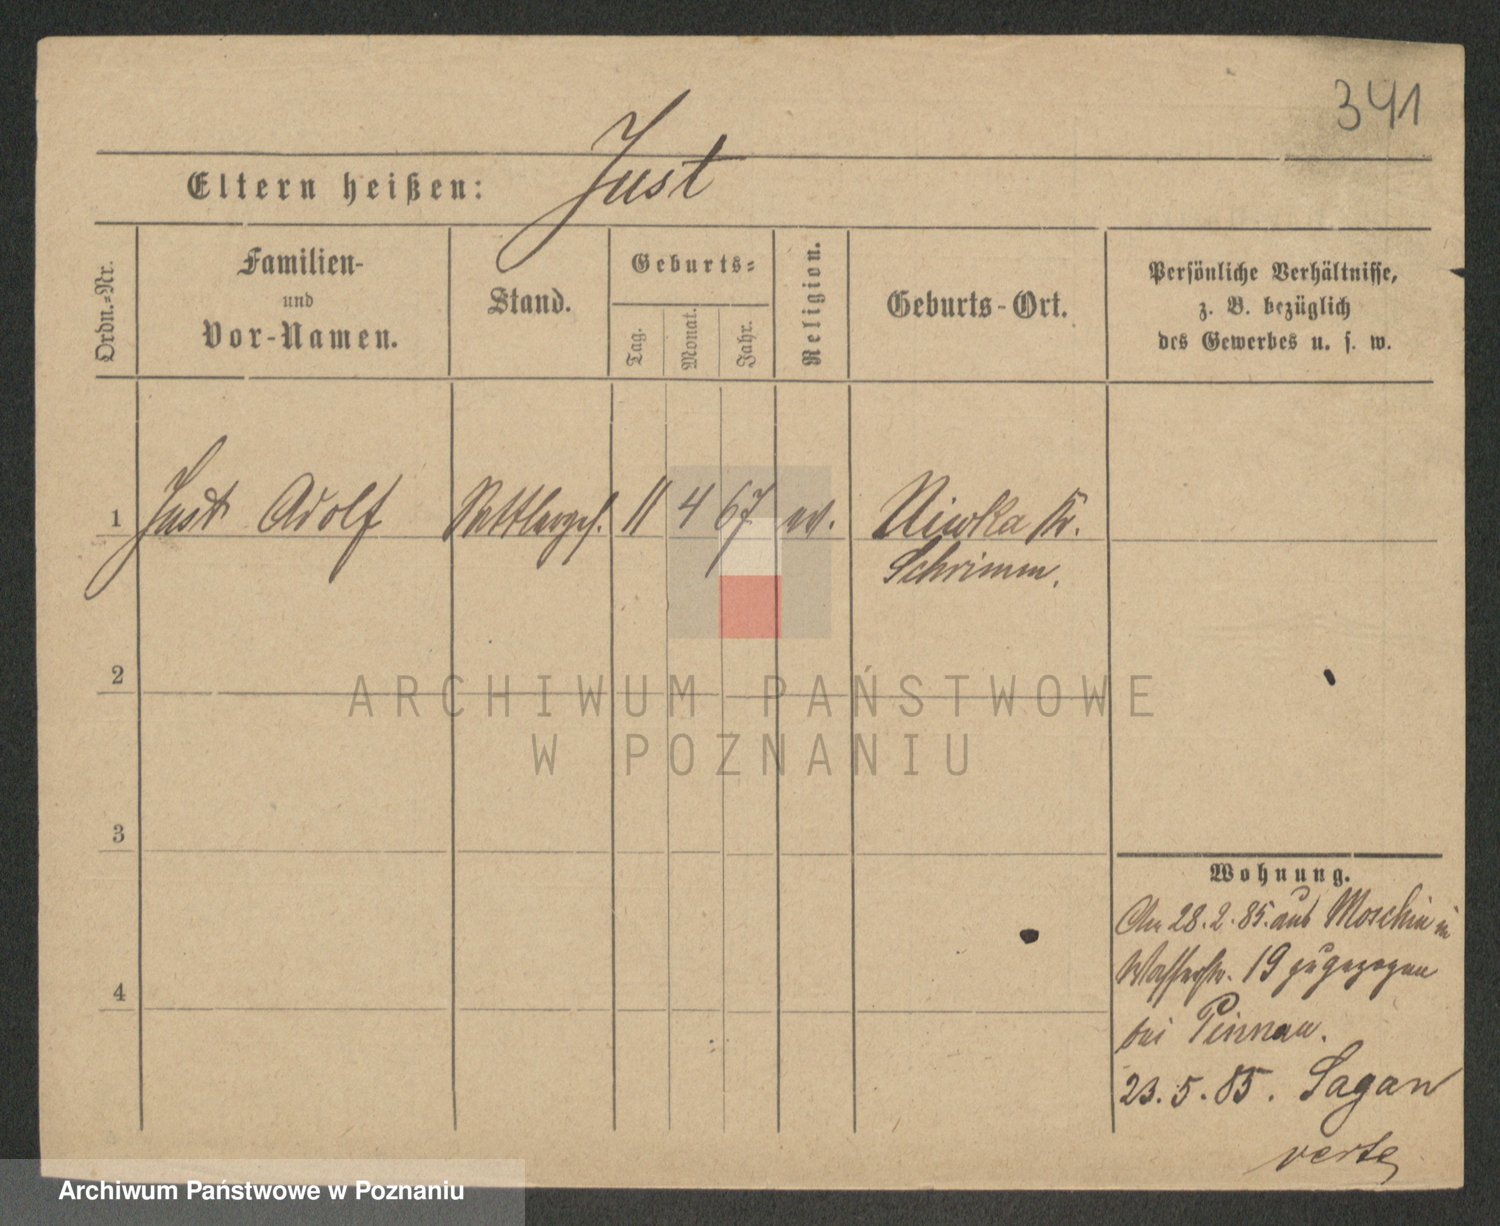 341
Eltern heißen: Just
Ordn.=Nr.
Familien-
und
Vor-Namen.
Stand.
Geburts=
Tag.
Monat.
Jahr.
Religion.
Geburts-Ort.
Persönliche Verhältnisse,
z. B. bezüglich
des Gewerbes u. s. w.
1 Just Adolf Sattlerges. 11 4 67 ev. Niwka Kr.
Schrimm.
2
3
4
ARCHIWUM PAŃSTWOWE
W POZNANIU
Wohnung.
Am 28.2.85. aus Moschin in
Wasserstr. 19 zugezogen
bei Pinnau.
23.5.85. Sagan
verte
Archiwum Państwowe w Poznaniu